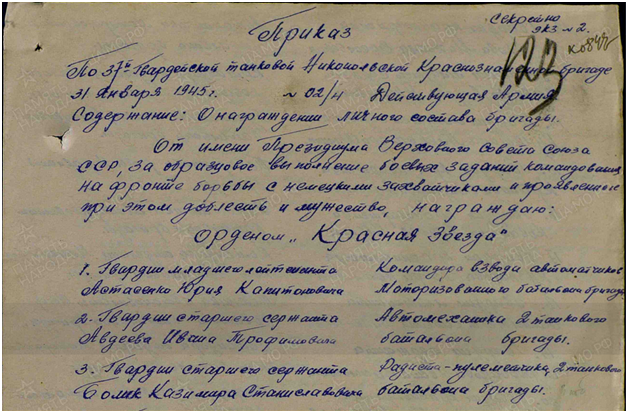 Секретно
Приказ
экз №2.
123
По 37й Гвардейской танковой Никопольской Краснознаменной бригаде
31 января 1945 г. № 02/н Действующая Армия
Содержание: О награждении личного состава бригады.
От имени Президиума Верховного Совета Союза
ССР, за образцовое выполнение боевых заданий командования
на фронте борьбы с немецкими захватчиками и проявленные
при этом доблесть и мужество, награждаю:
орденом „Красная Звезда"
1. Гвардии младшего лейтенанта Командира взвода автоматчиков
Астасенко Юрия Капитоновича Моторизованного батальона бригады
2. Гвардии старшего сержанта Автомеханика 2 танкового
Авдеева Ивана Трофимовича батальона бригады.
3. Гвардии старшего сержанта Радиста-пулеметчика 2 танкового
Болек Казимира Станиславовича батальона бригады.